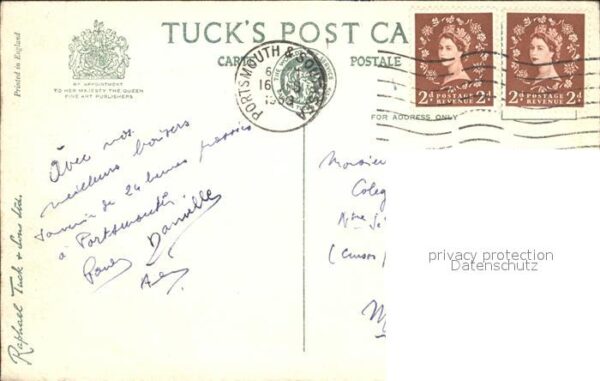 TUCK'S POST CA
CARTE POSTALE
Printed in England
BY APPOINTMENT
TO HER MAJESTY THE QUEEN
FINE ART PUBLISHERS
PORTSMOUTH & SOUTHSEA
1953
2d POSTAGE REVENUE 2d
2d POSTAGE REVENUE 2d
FOR ADDRESS ONLY
Avec nos
meilleurs baisers
Souvenir de 24 heures passées
à Portsmouth
Danielle
Monsieur
privacy protection
Datenschutz
Raphael Tuck & Sons Ltd.